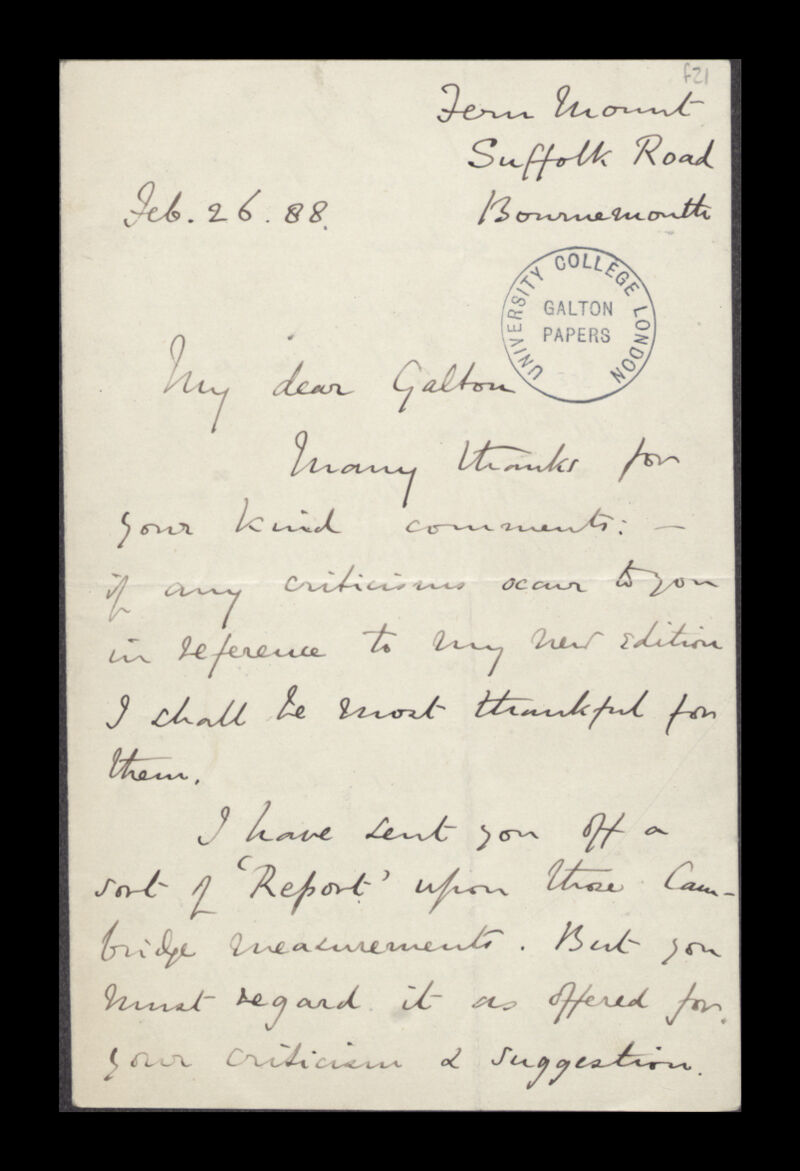 f21
Fern Mount
Suffolk Road
Bournemouth
Feb. 26. 88.
UNIVERSITY COLLEGE LONDON
GALTON
PAPERS
My dear Galton
Many thanks for
your kind comments: –
if any criticisms occur to you
in reference to my new edition
I shall be most thankful for
them.
I have sent you off a
sort of 'Report' upon those Cam-
bridge measurements. But you
must regard it as offered for
your criticism & suggestion.